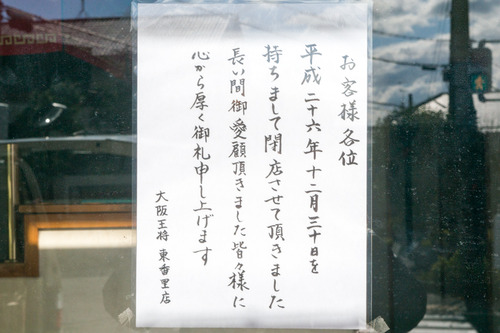 お客様各位
平成二十六年十二月三十日を
持ちまして閉店させて頂きました
長い間御愛顧頂きました皆々様に
心から厚く御札申し上げます
大阪王将 東香里店